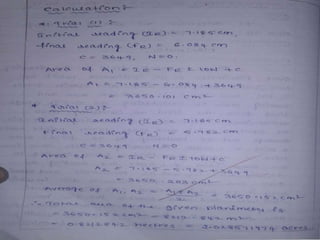 Calculation :-
Trial (1) :-
Initial reading (IR) = 7.185 cm,
final reading (FR) = 6.084 cm
C = 3649, N=0.
Area of A1 = IR - FR ± 10N + C
A1 = 7.185 - 6.084 + 3649
= 3650.101 cm²
* Trial (2) :-
Initial reading (IR) = 7.185 cm
Final reading (FR) = 5.982 cm
C = 3649, N=0
Area of A2 = IR - FR ± 10N + C
A2 = 7.185 - 5.982 + 3649
= 3650.203 cm²
Average of A1, A2 = A1+A2 = 3650.152 cm²
∴ Total area of the given planimetry is
= 3650.152 cm²